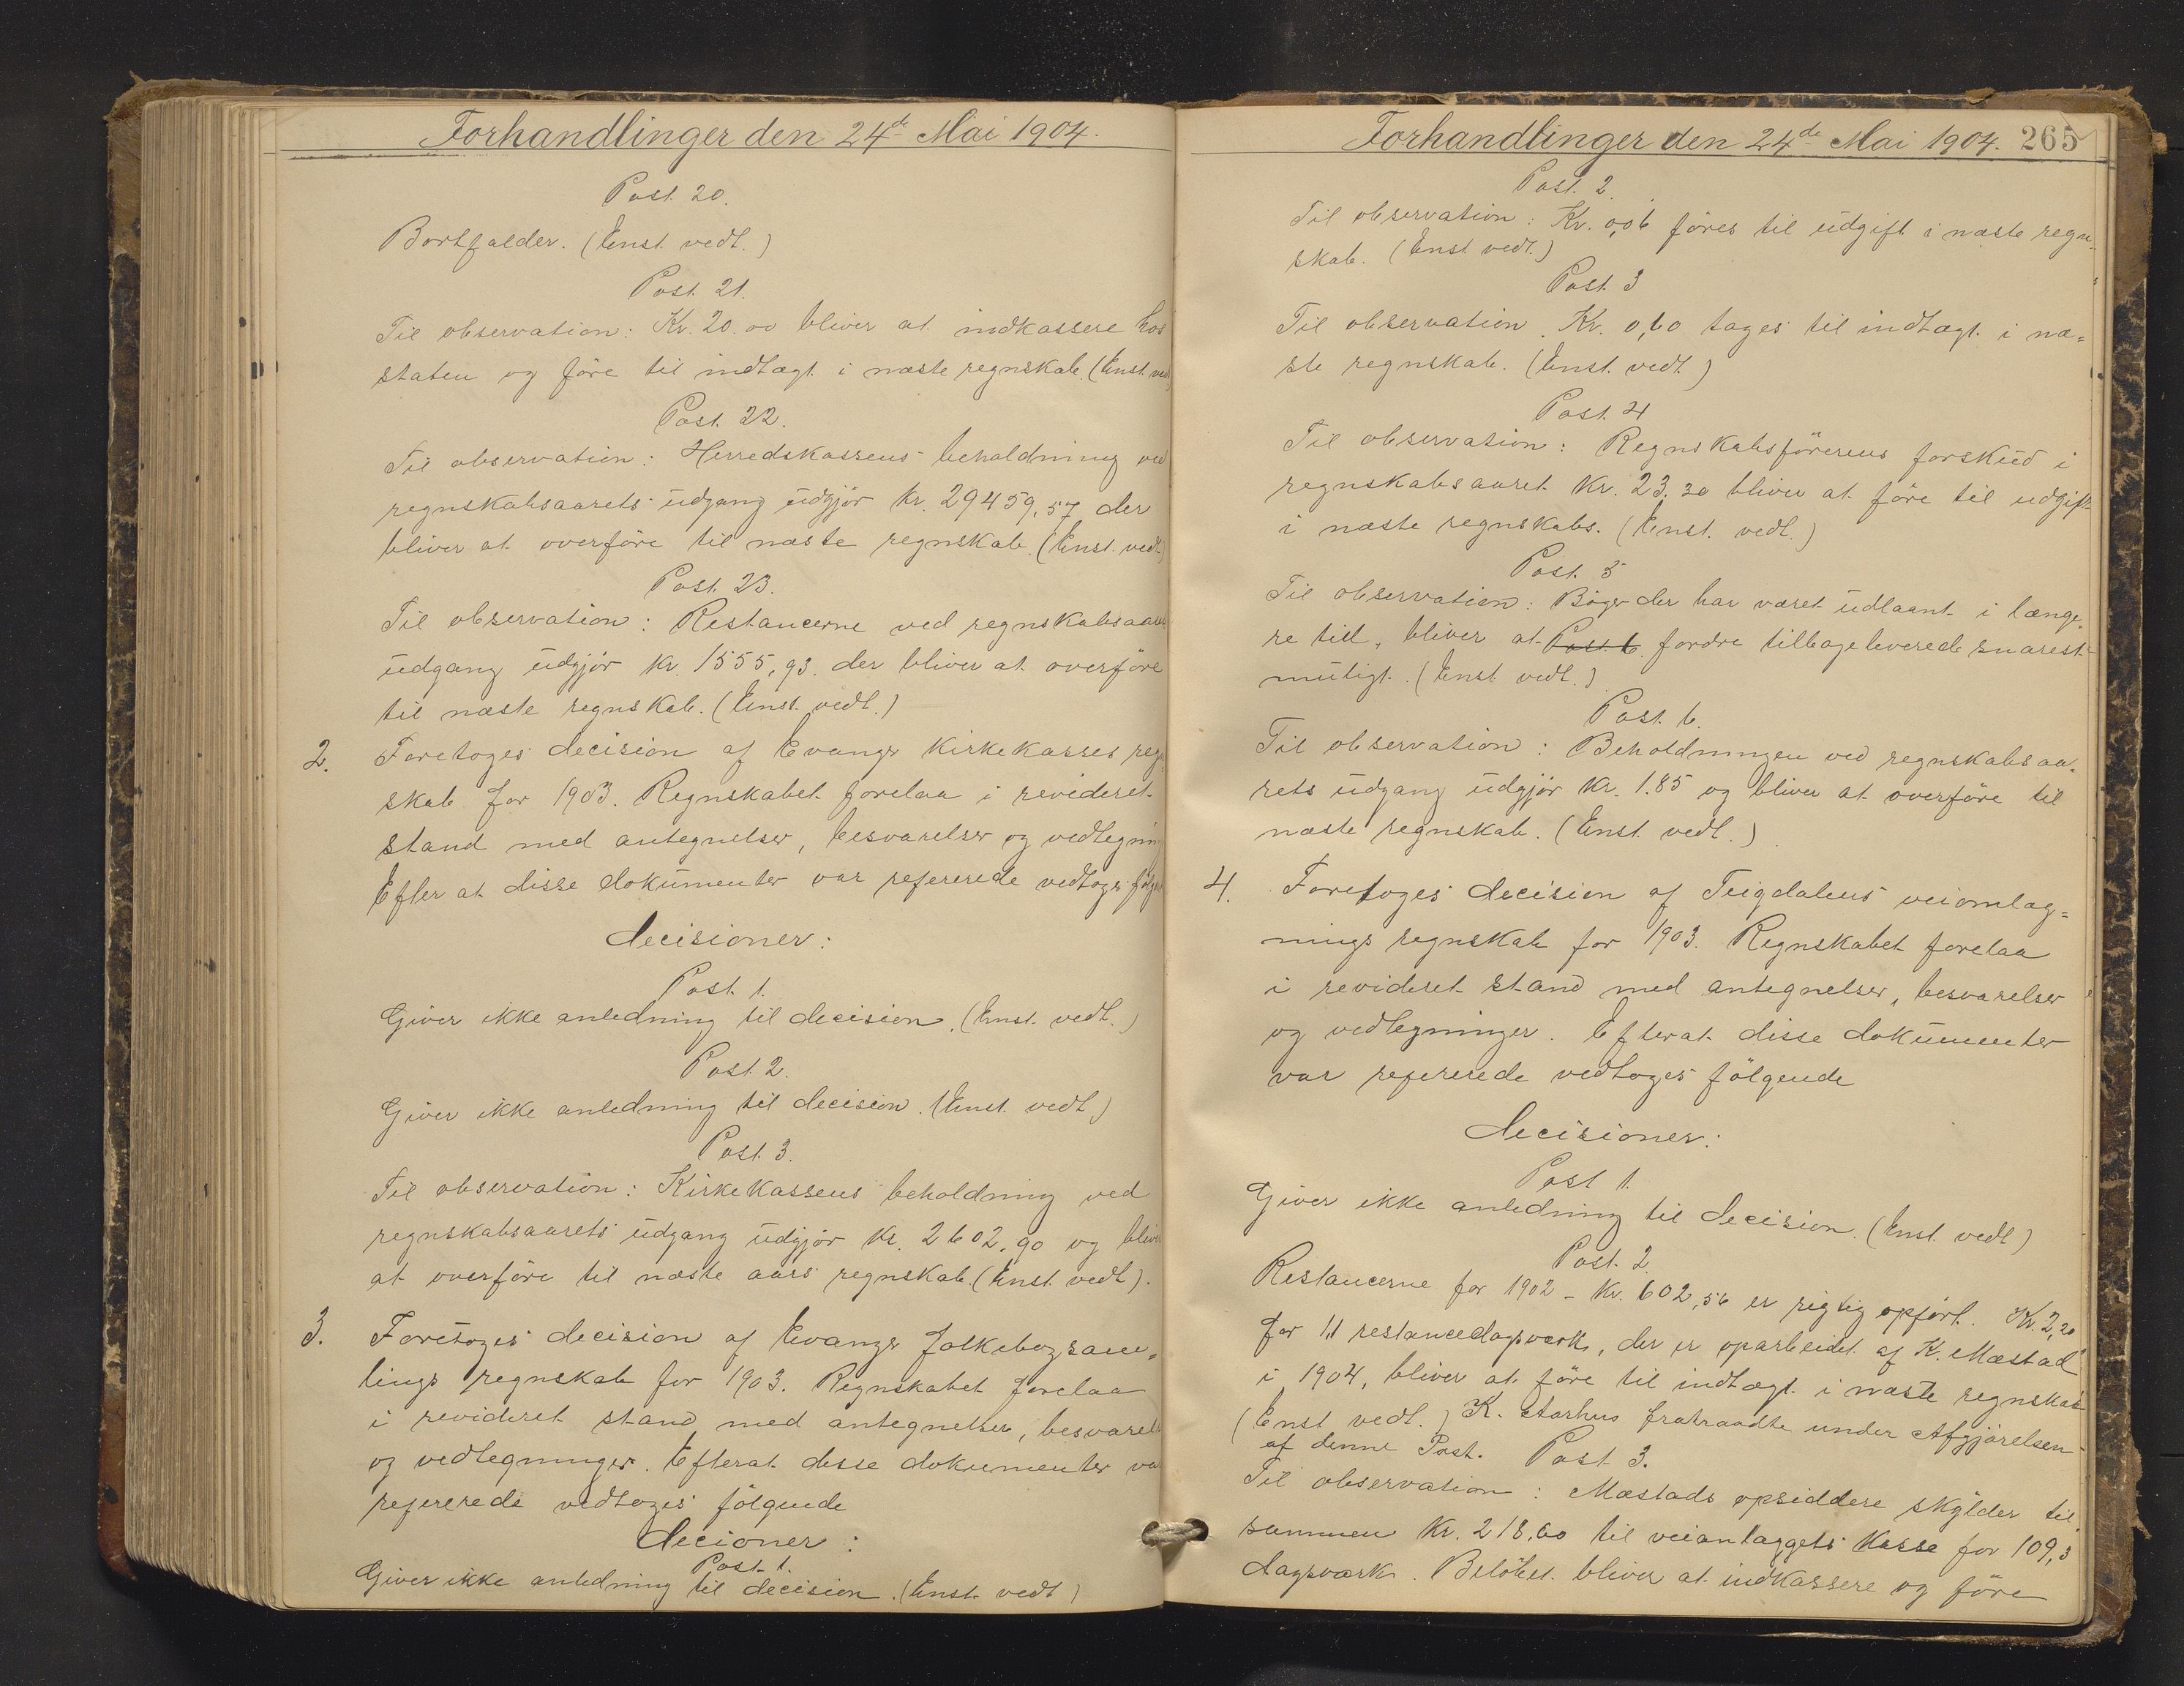 Forhandlinger den 24de Mai 1904.
Post 20.
Bortfalder. (Enst. vedt.)
Post. 21.
Til observation: Kr. 20.00 bliver at indkassere hos
staten og före til indtægt i næste regnskab. (Enst. vedt
Post. 22.
Til observation: Herredskassens beholdning ved
regnskabsaarets udgang udgjör kr. 29459,57 der
bliver at overföre til næste regnskab. (Enst. vedt.)
Post. 23.
Til observation: Restancerne ved regnskabsaarets
udgang udgjör kr. 1555,93. der bliver at overföre
til næste regnskab. (Enst. vedt.)
2. Foretoges decision af Evanger Kirkekasses regn
skab for 1903. Regnskabet forelaa i revideret
stand med antegnelser, besvarelser og vedlegning
Efter at disse dokumenter var refererede vedtoges fölgende
decisioner:
Post. 1.
Giver ikke anledning til decision. (Enst. vedt.)
Post 2.
Giver ikke anledning til decision. (Enst. vedt)
Post. 3.
Til observation: Kirkekassens beholdning ved
regnskabsaarets udgang udgjör kr. 2602,90 og bliver
at overföre til næste aars regnskab. (Enst. vedt).
3. Foretoges decision af Evanger folkebogsam-
lings regnskab for 1903. Regnskabet forelaa
i revideret stand med antegnelser, besvarelser
og vedlegninger. Efterat disse dokumenter var
refererede vedtoges fölgende
decioner:
Post. 1.
Giver ikke anledning til decision. (Enst. vedt)
Forhandlinger den 24de Mai 1904. 265
Post. 2
Til observation: Kr. 0,06 föres til udgift i næste regn-
skab. (Enst. vedt.)
Post 3
Til observation. Kr. 0,60 tages til indtægt i næ=
ste regnskab. (Enst. vedt)
Post. 4
Til observation: Regnskabsförerens forskud i
regnskabsaaret kr. 23,30 bliver at före til udgift
i næste regnskabs. (Enst. vedt.)
Post. 5
Til observation: Böger der har været udlaant i længe-
re tid, bliver at Post. 6. fordre tilbageleverede snarest
muligt. (Enst vedt.)
Post. 6.
Til observation: Beholdningen ved regnskabsaa-
rets udgang udgjör kr. 1.85 og bliver at overföre til
næste regnskab. (Enst. vedt.)
4. Foretoges decision af Teigdalens veiomlæg=
nings regnskab for 1903. Regnskabet forelaa
i revideret stand med antegnelser, besvarelser
og vedlegninger. Efterat disse dokumenter
var refererede vedtoges fölgende
decisioner:
Post 1.
Giver ikke anledning til decision. (Enst. vedt)
Post. 2.
Restancerne for 1902 - kr. 602,56 er rigtig opfört. Kr. 2,20
for 1,1 restancedagsværk, der er oparbeidet af K. Mæstad
i 1904, bliver at före til indtægt i næste regnskab
(Enst vedt.) K. Aarhus fratraadte under Afgjörelsen
af denne Post. Post 3.
Til observation: Mæstads opsiddere skylder til
sammen kr. 218,60 til veianlæggets kasse for 109,3
dagsværk. Belöbet bliver at indkassere og före